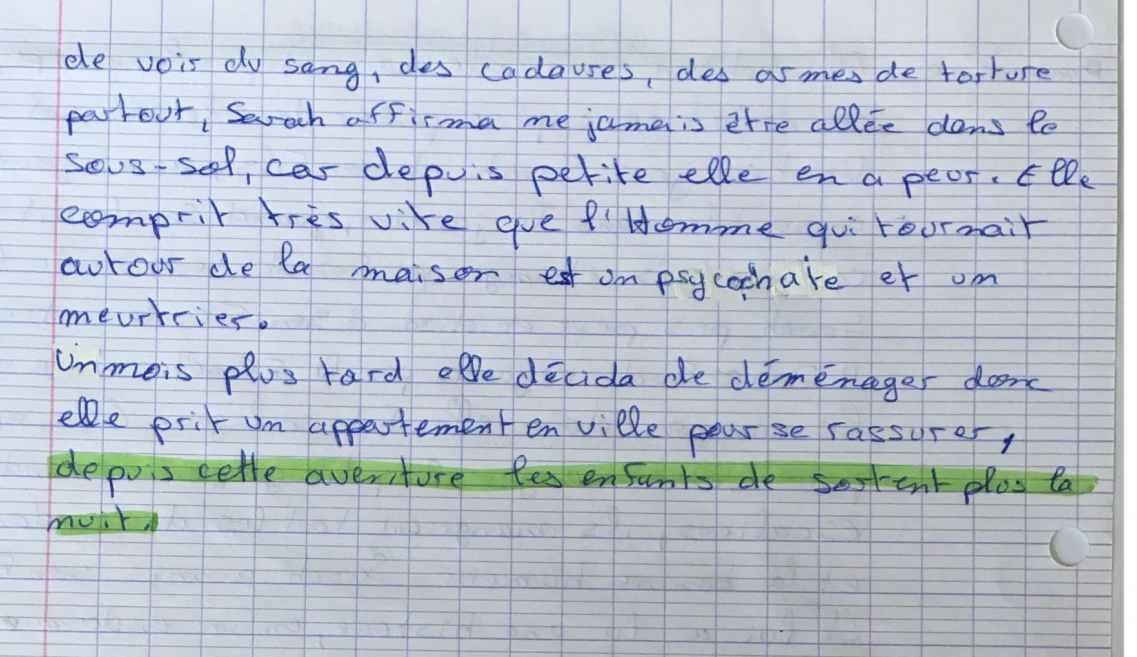 de voir du sang, des cadavres, des armes de torture
partout, Sarah affirma ne jamais être allée dans le
sous-sol, car depuis petite elle en a peur. Elle
comprit très vite que l'Homme qui tournait
autour de la maison est un psycochate et un
meurtrier.
Un mois plus tard elle décida de déménager donc
elle prit un appartement en ville pour se rassurer,
depuis cette aventure les enfants de sortent plus la
nuit.